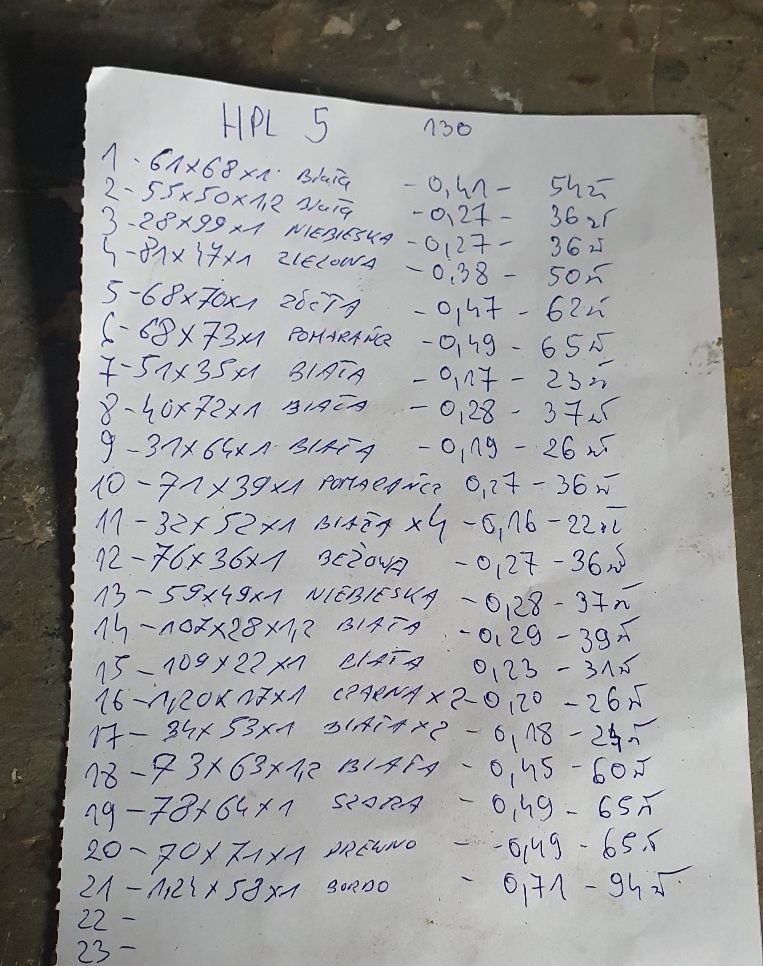 HPL 5 130
1 - 61x68x1 Biała - 0,41 - 54zł
2 - 55x50x1,2 Biała - 0,27 - 36zł
3 - 28x99x1 NIEBIESKA - 0,27 - 36zł
4 - 81x47x1 ZIELONA - 0,38 - 50zł
5 - 68x70x1 ŻÓŁTA - 0,47 - 62zł
6 - 68x73x1 POMARAŃCZ - 0,49 - 65zł
7 - 51x35x1 BIAŁA - 0,17 - 23zł
8 - 40x72x1 BIAŁA - 0,28 - 37zł
9 - 31x64x1 BIAŁA - 0,19 - 26zł
10 - 71x39x1 POMARAŃCZ 0,27 - 36zł
11 - 32x52x1 BIAŁA x4 - 0,16 - 22zł
12 - 76x36x1 BEŻOWA - 0,27 - 36zł
13 - 59x49x1 NIEBIESKA - 0,28 - 37zł
14 - 107x28x1,2 BIAŁA - 0,29 - 39zł
15 - 109x22x1 BIAŁA 0,23 - 31zł
16 - 1,20x17x1 CZARNA x2 - 0,20 - 26zł
17 - 34x53x1 BIAŁA x2 - 0,18 - 24zł
18 - 73x63x1,2 BIAŁA - 0,45 - 60zł
19 - 78x64x1 SZARA - 0,49 - 65zł
20 - 70x71x1 DREWNO - 0,49 - 65zł
21 - 1,24x58x1 BORDO - 0,71 - 94zł
22 -
23 -